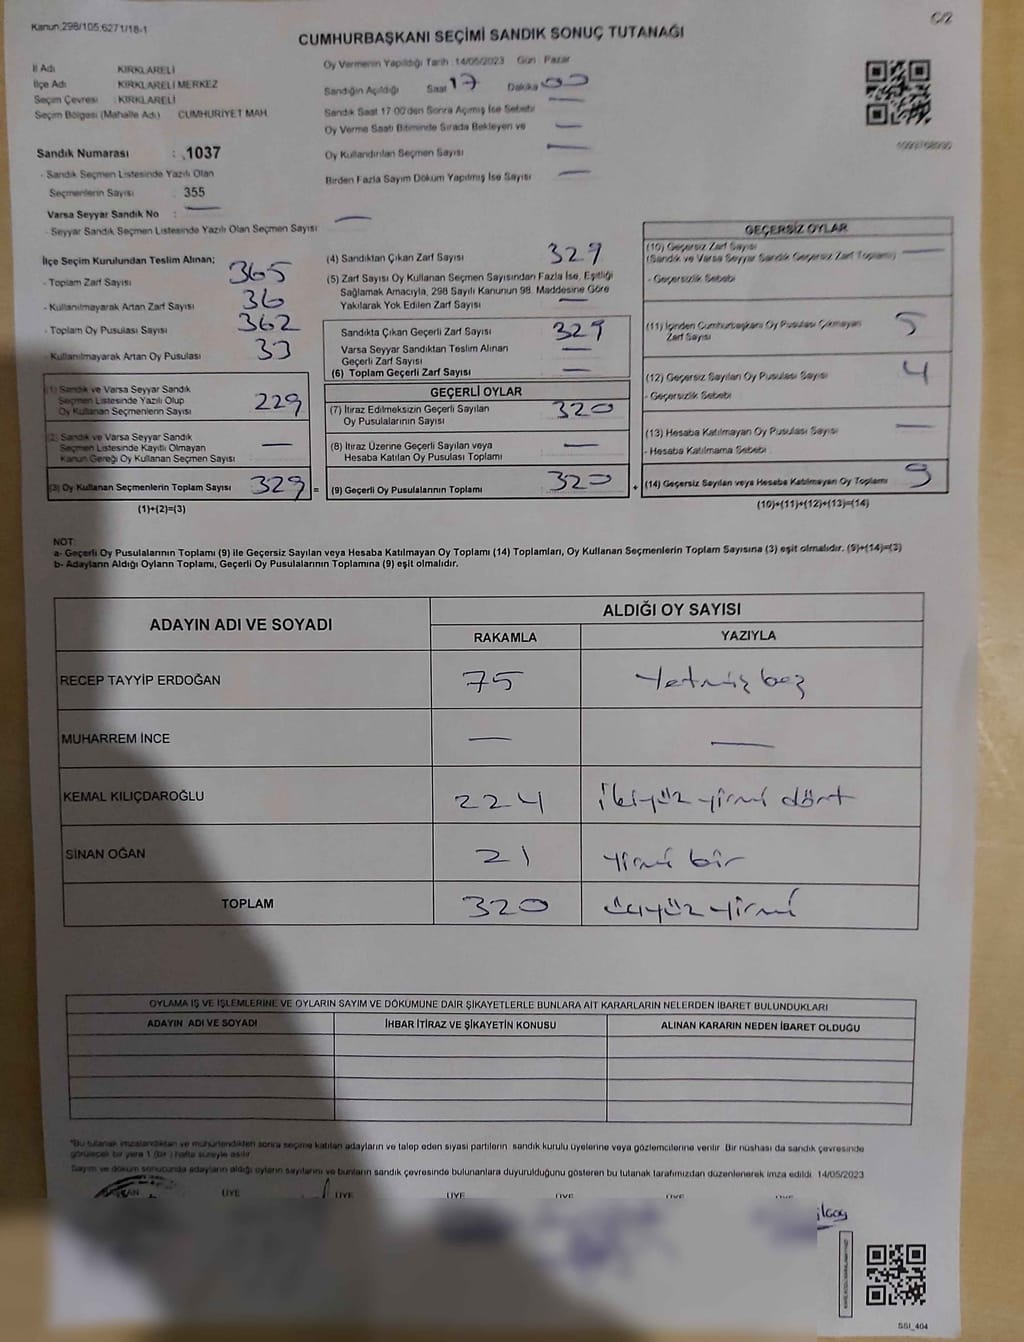 Kanun:298/105,6271/18-1
C/2
CUMHURBAŞKANI SEÇİMİ SANDIK SONUÇ TUTANAĞI
İl Adı KIRKLARELİ
İlçe Adı KIRKLARELİ MERKEZ
Seçim Çevresi : KIRKLARELİ
Seçim Bölgesi (Mahalle Adı) CUMHURİYET MAH.
Sandık Numarası : 1037
- Sandık Seçmen Listesinde Yazılı Olan
Seçmenlerin Sayısı 355
Varsa Seyyar Sandık No : —
- Seyyar Sandık Seçmen Listesinde Yazılı Olan Seçmen Sayısı —
Oy Vermenin Yapıldığı Tarih :14/05/2023 Gün : Pazar
Sandığın Açıldığı Saat 17 Dakika 00
Sandık Saat 17:00'den Sonra Açılmış İse Sebebi —
Oy Verme Saati Bitiminde Sırada Bekleyen ve —
Oy Kullandırılan Seçmen Sayısı —
Birden Fazla Sayım Döküm Yapılmış İse Sayısı —
İlçe Seçim Kurulundan Teslim Alınan;
- Toplam Zarf Sayısı 365
- Kullanılmayarak Artan Zarf Sayısı 36
- Toplam Oy Pusulası Sayısı 362
- Kullanılmayarak Artan Oy Pusulası 33
(1) Sandık ve Varsa Seyyar Sandık
Seçmen Listesinde Yazılı Olup
Oy Kullanan Seçmenlerin Sayısı 229
(2) Sandık ve Varsa Seyyar Sandık
Seçmen Listesinde Kayıtlı Olmayan
Kanun Gereği Oy Kullanan Seçmen Sayısı —
(3) Oy Kullanan Seçmenlerin Toplam Sayısı 329 =
(1)+(2)=(3)
(4) Sandıktan Çıkan Zarf Sayısı 329
(5) Zarf Sayısı Oy Kullanan Seçmen Sayısından Fazla İse, Eşitliği
Sağlamak Amacıyla, 298 Sayılı Kanunun 98. Maddesine Göre
Yakılarak Yok Edilen Zarf Sayısı —
Sandıkta Çıkan Geçerli Zarf Sayısı 329
Varsa Seyyar Sandıktan Teslim Alınan
Geçerli Zarf Sayısı —
(6) Toplam Geçerli Zarf Sayısı —
GEÇERLİ OYLAR
(7) İtiraz Edilmeksizin Geçerli Sayılan
Oy Pusulalarının Sayısı 320
(8) İtiraz Üzerine Geçerli Sayılan veya
Hesaba Katılan Oy Pusulası Toplamı —
(9) Geçerli Oy Pusulalarının Toplamı 320 +
GEÇERSİZ OYLAR
(10) Geçersiz Zarf Sayısı
(Sandık ve Varsa Seyyar Sandık Geçersiz Zarf Toplamı) —
- Geçersizlik Sebebi
(11) İçinden Cumhurbaşkanı Oy Pusulası Çıkmayan
Zarf Sayısı 5
(12) Geçersiz Sayılan Oy Pusulası Sayısı 4
- Geçersizlik Sebebi
(13) Hesaba Katılmayan Oy Pusulası Sayısı —
- Hesaba Katılmama Sebebi
(14) Geçersiz Sayılan veya Hesaba Katılmayan Oy Toplamı 9
(10)+(11)+(12)+(13)=(14)
NOT:
a- Geçerli Oy Pusulalarının Toplamı (9) ile Geçersiz Sayılan veya Hesaba Katılmayan Oy Toplamı (14) Toplamları, Oy Kullanan Seçmenlerin Toplam Sayısına (3) eşit olmalıdır. (9)+(14)=(3)
b- Adayların Aldığı Oyların Toplamı, Geçerli Oy Pusulalarının Toplamına (9) eşit olmalıdır.
ADAYIN ADI VE SOYADI ALDIĞI OY SAYISI
RAKAMLA YAZIYLA
RECEP TAYYİP ERDOĞAN 75 Yetmiş beş
MUHARREM İNCE — —
KEMAL KILIÇDAROĞLU 224 ikiyüz yirmi dört
SİNAN OĞAN 21 yirmi bir
TOPLAM 320 üçyüz yirmi
OYLAMA İŞ VE İŞLEMLERİNE VE OYLARIN SAYIM VE DÖKÜMÜNE DAİR ŞİKAYETLERLE BUNLARA AİT KARARLARIN NELERDEN İBARET BULUNDUKLARI
ADAYIN ADI VE SOYADI İHBAR İTİRAZ VE ŞİKAYETİN KONUSU ALINAN KARARIN NEDEN İBARET OLDUĞU
"Bu tutanak imzalandıktan ve mühürlendikten sonra seçime katılan adayların ve talep eden siyasi partilerin sandık kurulu üyelerine veya gözlemcilerine verilir. Bir nüshası da sandık çevresinde
görülecek bir yere 1 (bir) hafta süreyle asılır.
Sayım ve döküm sonucunda adayların aldığı oyların sayılarını ve bunların sandık çevresinde bulunanlara duyurulduğunu gösteren bu tutanak tarafımızdan düzenlenerek imza edildi. 14/05/2023
BAŞKAN ÜYE ÜYE ÜYE ÜYE ÜYE ÜYE
SSİ_404